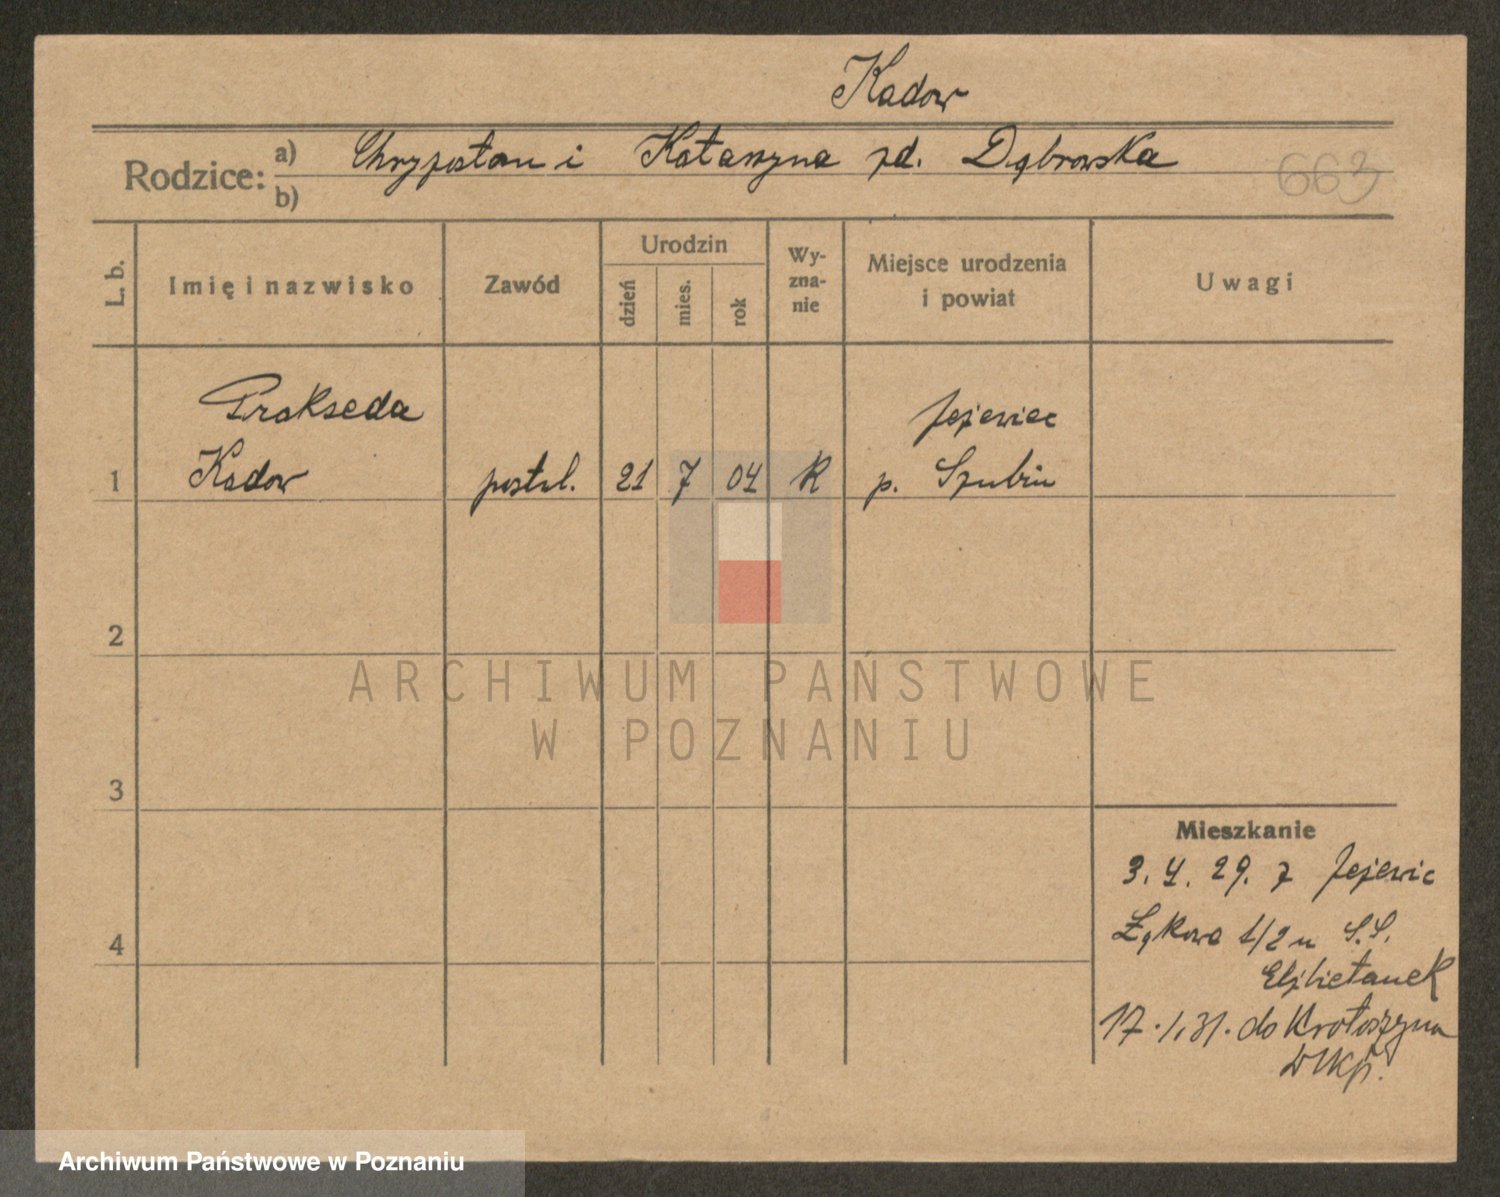 Kadow
Rodzice: a) Chryzostom i Katarzyna zd. Dąbrowska
b)
663
L. b. Imię i nazwisko Zawód Urodzin dzień mies. rok Wy-zna-nie Miejsce urodzenia i powiat Uwagi
Prakseda Jeżewiec
1 Kadow postul. 21 7 04 R p. Szubin
2
3
4
Mieszkanie
3. 4. 29. z Jeżewic
Łąkowa 1/2 u S.S.
Elżbietanek
17. 1. 31. do Krotoszyna
Wlkp.
ARCHIWUM PAŃSTWOWE
W POZNANIU
Archiwum Państwowe w Poznaniu